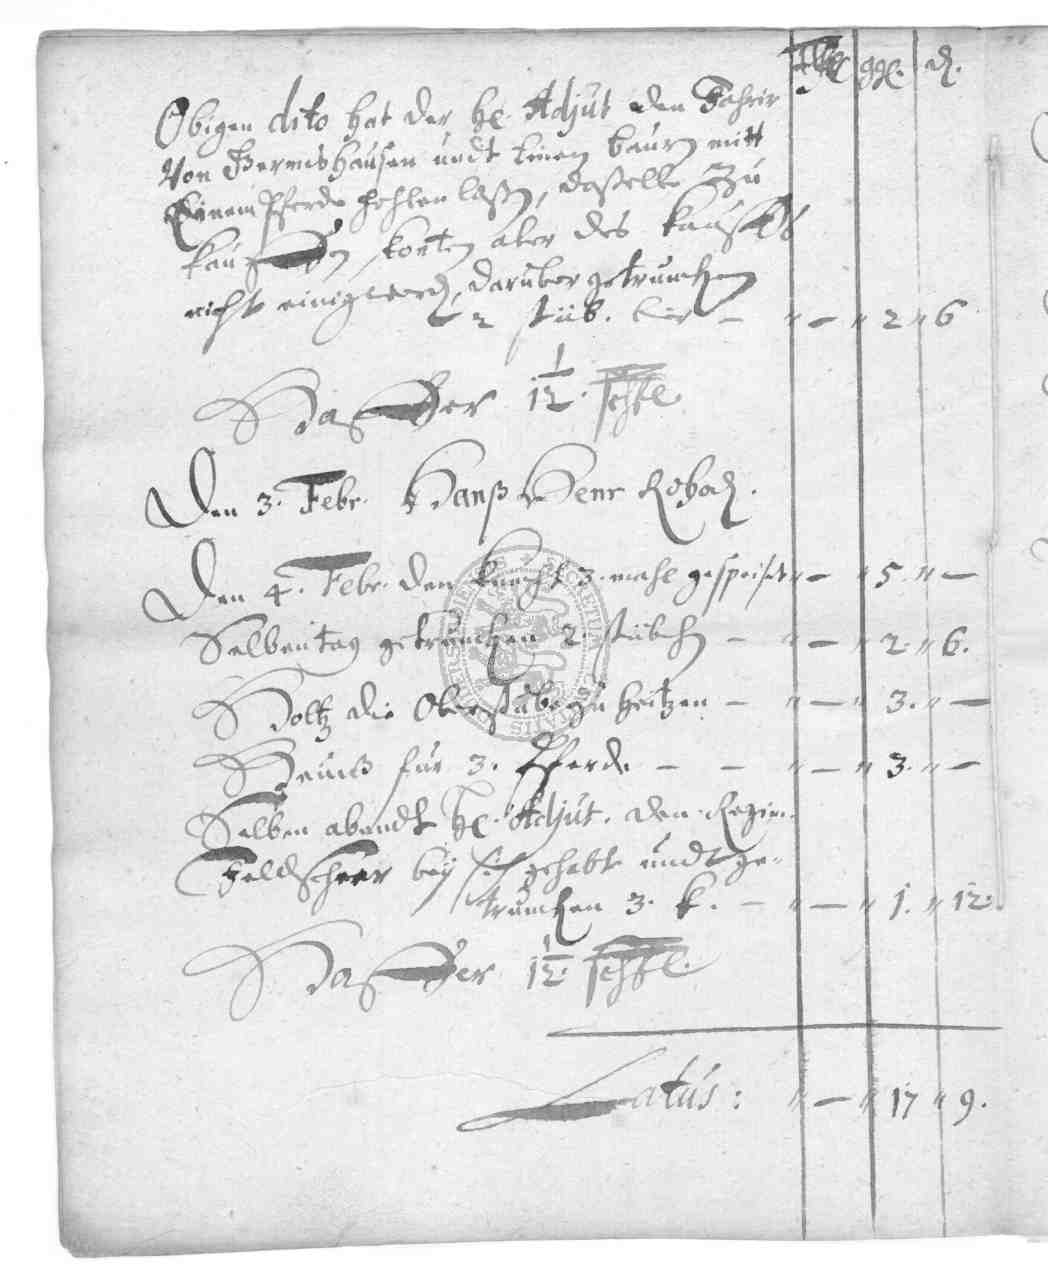 Thlr ggl. d.
Obigen dito hat der Hl. Adjut den Fahrir
Von Germshausen undt einen baurn mitt
Einem Pferde hohlen laßen, daßelbe zu
kauffen, konten aber des kauffs
nicht einig werd, daruber getruncken
2 stüb. bier - " - " 2 " 6
Haffer 1 1/2 schfl.
Den 3. Febr. Hanß Henr
Den 4. Febr. den Knecht 3. mahl gespeiset " - " 5. " -
Selben tag getruncken 2. stübch - " - " 2. " 6.
Holtz die Oberstube zu heitzen - " - " 3. " -
Heuw für 3. Pferde - - " - " 3. " -
Selben abendt Hl. Adjut. den Regim.
Feldscheer bey sich gehabt undt ge-
truncken 3. k. - " - " 1. " 12.
Haffer 1 1/2 schfl.
Latus: " - " 17 " 9.